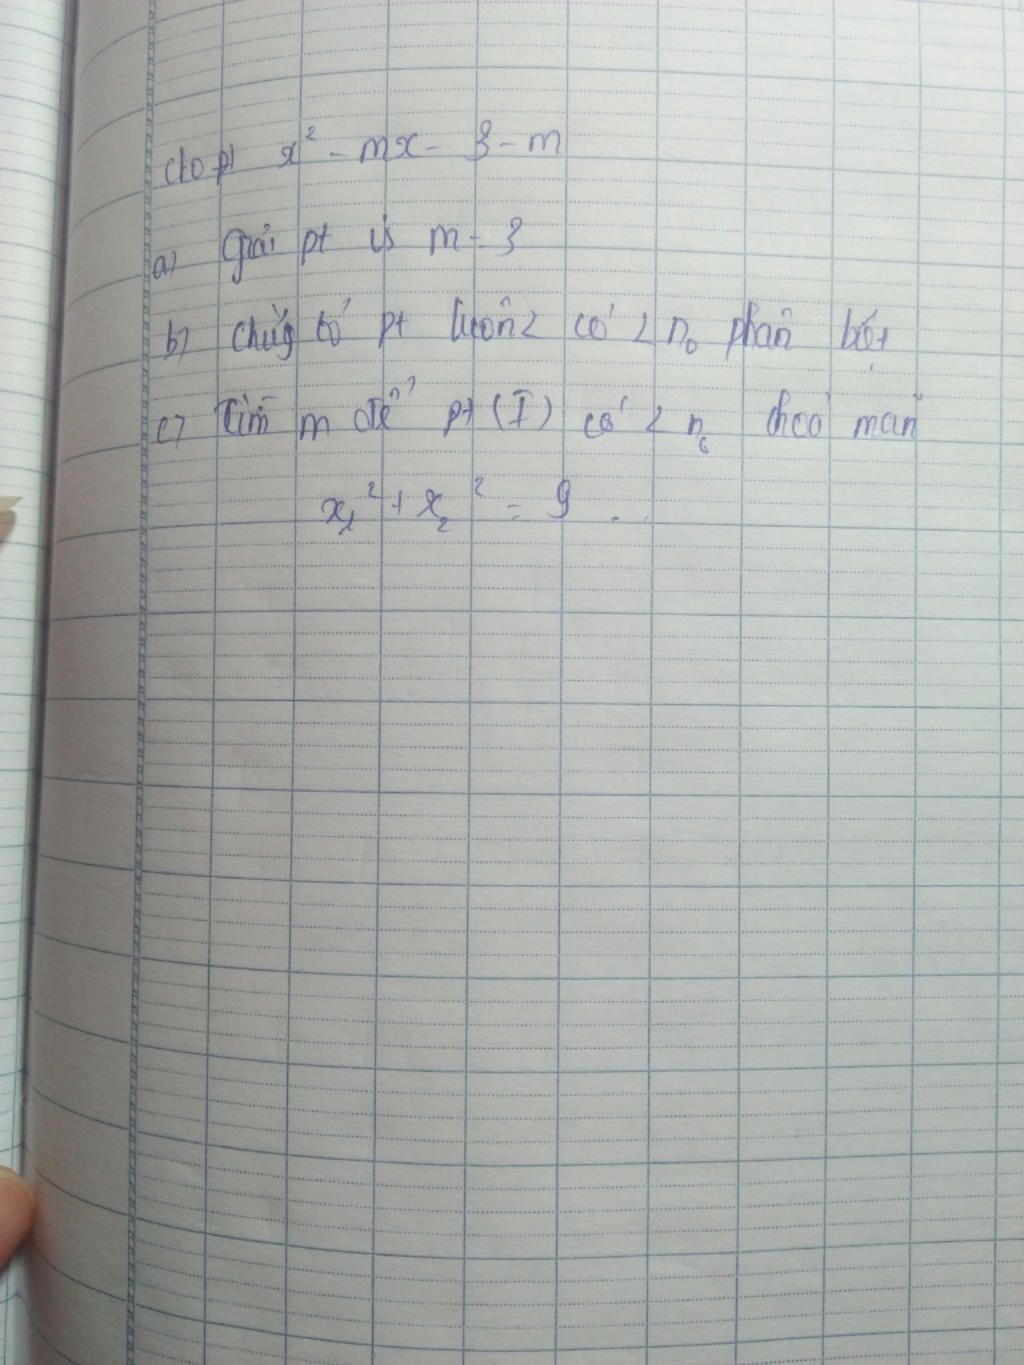 cho pt x² - mx - 3 - m
a) Giải pt vs m = 3
b) chứg tỏ pt luôn2 có 2 n₀ phân bót
c) Tìm m để pt (I) có 2 n₀ thoả mãn
x₁² + x₂² = 9 ...